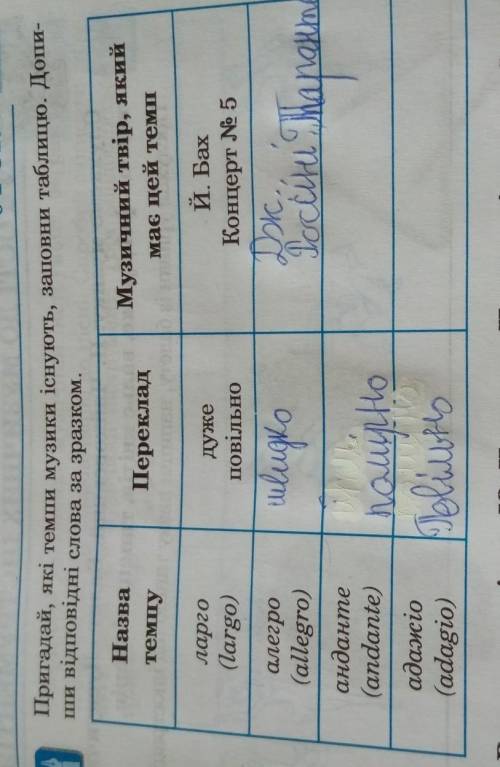 Пригадай, які темпи музики існують, заповни таблицю. Допи-
ши відповідні слова за зразком.
Назва
темпу
Переклад
Музичний твір, який
має цей темп
ларго
(largo)
дуже
повільно
Й. Бах
Концерт № 5
алегро
(allegro)
швидко
Дж.
Россіні „Тарант
анданте
(andante)
адажіо
(adagio)